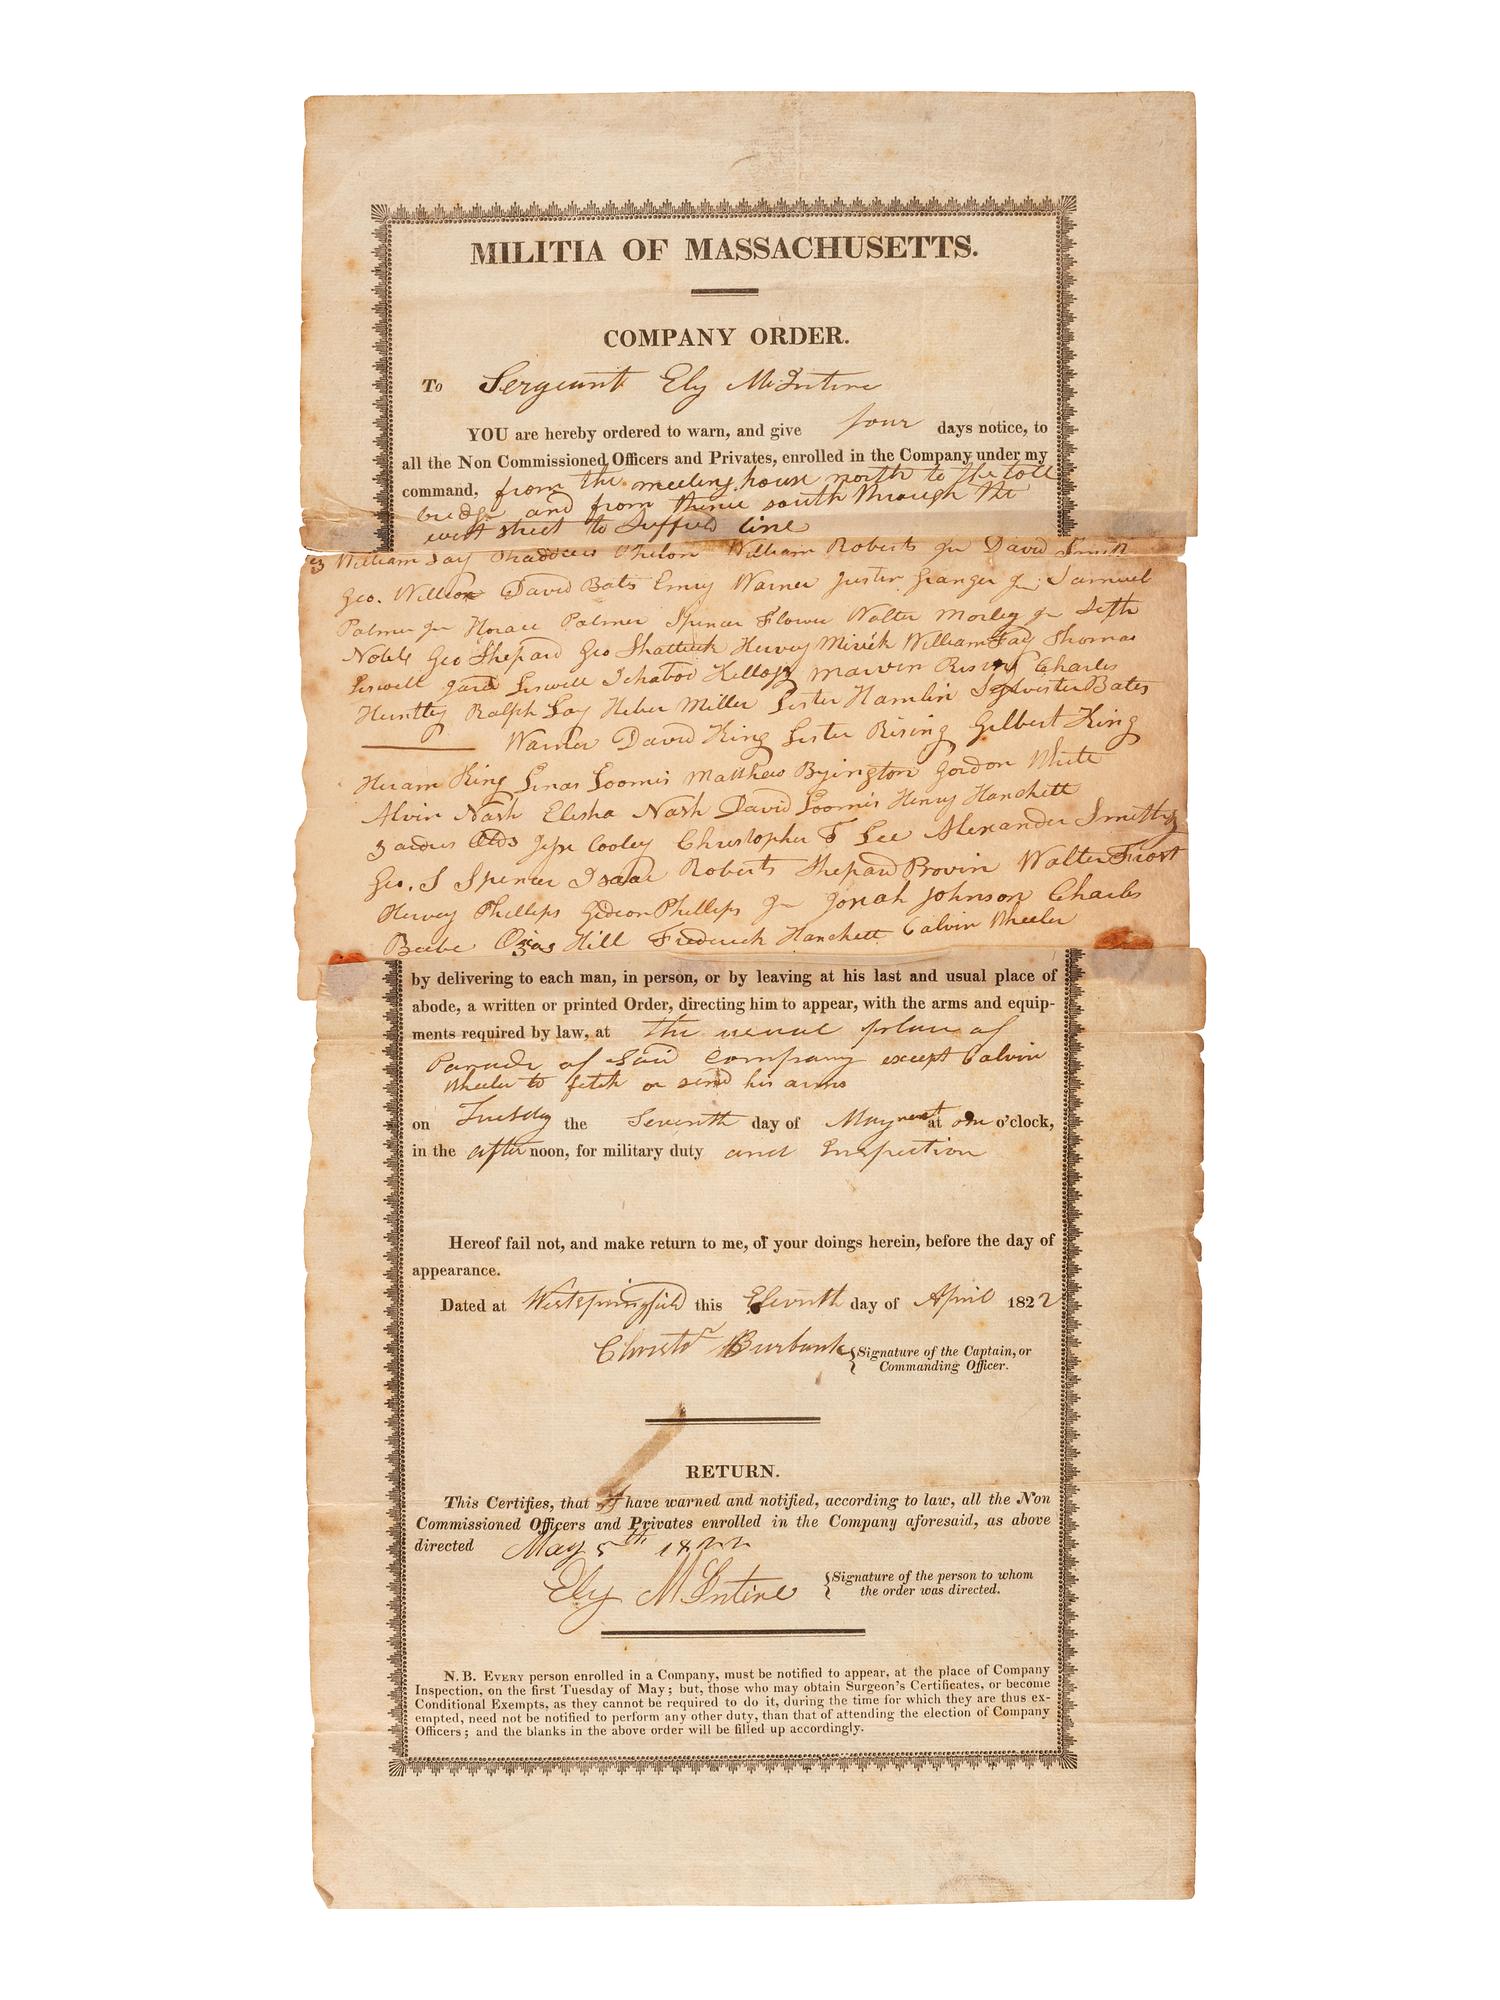 MILITIA OF MASSACHUSETTS.
COMPANY ORDER.
To Sergeant Ely McIntire
YOU are hereby ordered to warn, and give four days notice, to
all the Non Commissioned Officers and Privates, enrolled in the Company under my
command, from the meeting house north to the toll
bridge and from thence south through the
west street to Suffield line
William Fay Thaddeus Phelon William Roberts Jr David Smith
Geo. David Bats Emry Warner Juster Granger Jr Samuel
Palmer Jr Horace Palmer Spencer Flower Walter Morley Jr Seth
Noble Geo Shepard Geo Shattuck Hervey Mirick William Fay Thomas
Liswell Jared Liswell Ichabod Kellogg Marvin Rising Charles
Huntley Ralph Lay Heber Miller Lester Hamlin Sylvester Bates
Warner David King Lester Rising Gilbert King
Hiram King Linas Loomis Matthew Byington Gordon White
Alvin Nash Elisha Nash David Loomis Henry Hanchett
Olds Jesse Cooley Christopher F Lee Alexander Smith
Geo. S Spencer Isaac Roberts Shepard Provin Walter Frost
Hervey Phillips Gideon Phillips Jr Jonah Johnson Charles
Beebe Ozias Hill Frederick Hanchett Calvin Wheeler
by delivering to each man, in person, or by leaving at his last and usual place of
abode, a written or printed Order, directing him to appear, with the arms and equip-
ments required by law, at the usual place of
Parade of Said Company except Calvin
Wheeler to fetch or send his arms
on Tuesday the Seventh day of May next at one o'clock,
in the after noon, for military duty and Inspection
Hereof fail not, and make return to me, of your doings herein, before the day of
appearance.
Dated at Westspringfield this Eleventh day of April 1822
Christr Burbank {Signature of the Captain, or
Commanding Officer.
RETURN.
This Certifies, that I have warned and notified, according to law, all the Non
Commissioned Officers and Privates enrolled in the Company aforesaid, as above
directed May 5th 1822
Ely McIntire {Signature of the person to whom
the order was directed.
N. B. EVERY person enrolled in a Company, must be notified to appear, at the place of Company
Inspection, on the first Tuesday of May; but, those who may obtain Surgeon's Certificates, or become
Conditional Exempts, as they cannot be required to do it, during the time for which they are thus ex-
empted, need not be notified to perform any other duty, than that of attending the election of Company
Officers; and the blanks in the above order will be filled up accordingly.